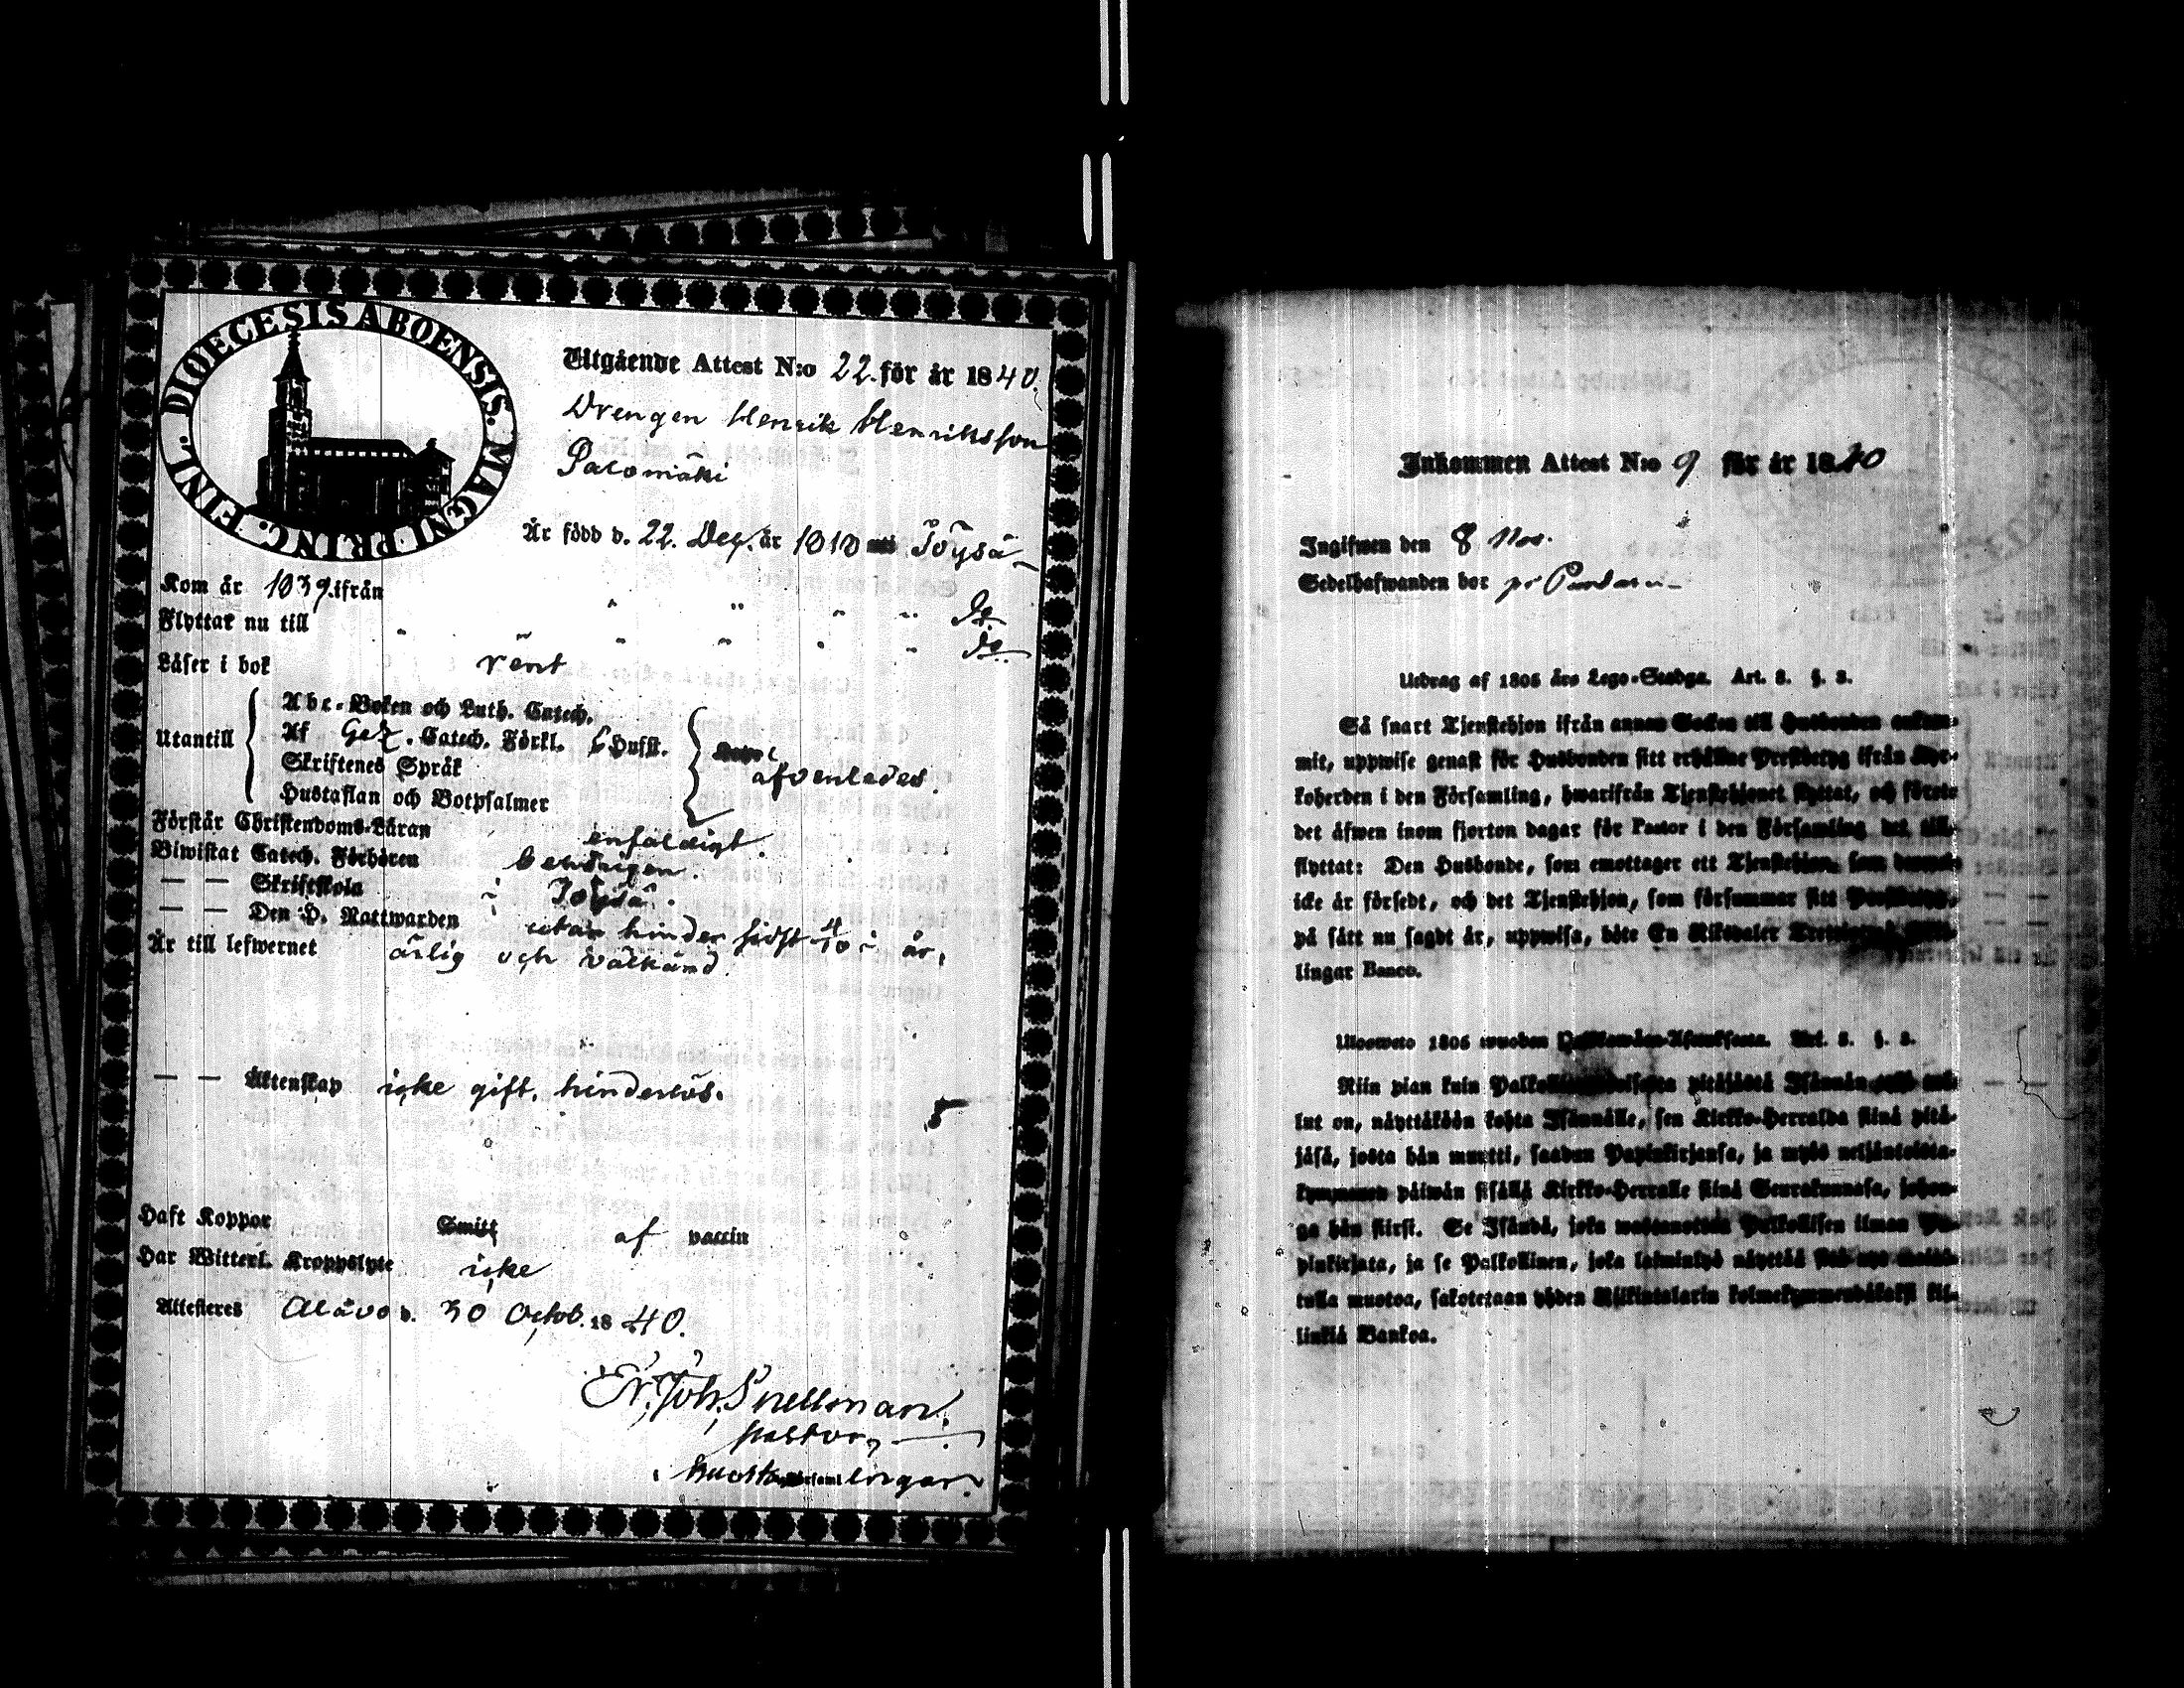 DIOECESIS ABOENSIS. MAGNI PRINC. FINL.
Utgående Attest N:o 22. för år 1840.
Drengen Henrik Henriksson
Salomäki
Är född d. 22. Dec. år 1818 Töysä
Kom år 1839. ifrån do.
Flyttar nu till do.
Läser i bok rent
Utantill
Abc-Boken och Luth. Catech.
Af Gez. Catech. Förkl. Hufst.
Skriftenes Språk
Hustaflan och Botpsalmer
afvenledes.
Förstår Christendoms-Läran enfaldigt.
Biwistat Catech. Förhören behörigen.
— — Skriftskola i Töysä.
— — Den H. Nattwarden utan hinder sidst i år.
Är till lefwernet ärlig och välkänd.
— — Äktenskap icke gift. hinderlös.
Haft Koppor Smitt af vaccin
Har Witterl. Kroppslyte icke
Attesteres Alavo d. 30 Octob. 1840.
Fr. Joh. Snellman.
pastor
Inkommen Attest N:o 9 för år 1840
Ingifwen den 8 Nov.
Sedelhafwanden bor på
Utdrag af 1805 års Lego-Stadga. Art. 8. §. 8.
Så snart Tjenstehjon ifrån annan Socken till Husbonden ankom-
mit, uppwise genast för Husbonden sitt erhållne Prestbetyg ifrån Kyr-
koherden i den Församling, hwarifrån Tjenstehjonet flyttat, och förete
det äfwen inom fjorton dagar för Pastor i den Församling det till-
flyttat: Den Husbonde, som emottager ett Tjenstehjon, som dermed
icke är försedt, och det Tjenstehjon, som försummer sitt Prestbetyg,
på sätt nu sagdt är, uppwisa, böte En Riksdaler
lingar Banco.
Ulosweto 1805 wuoden Palkowäen-Asetuksesta. Art. 8. §. 8.
Niin pian kuin pitäjästä Isännän
lut on, näyttäköön kohta Isännälle, sen Kirkko-Herralda siinä pitä-
jäsä, josta hän muutti, saadun Papinkirjansa, ja myös neljäntoista-
kymmenen päiwän sisällä Kirkko-Herralle siinä Seurakunnasa, johon-
ga hän siirsi. Se Isändä, joka wastanottaa Palkollisen ilman Pa-
pinkirjata, ja se Palkollinen, joka laiminlyö näyttää
tulla muotoa, sakotetaan yhden Riikintalarin kolmekymmendäkaksi kil-
linkiä Bankoa.